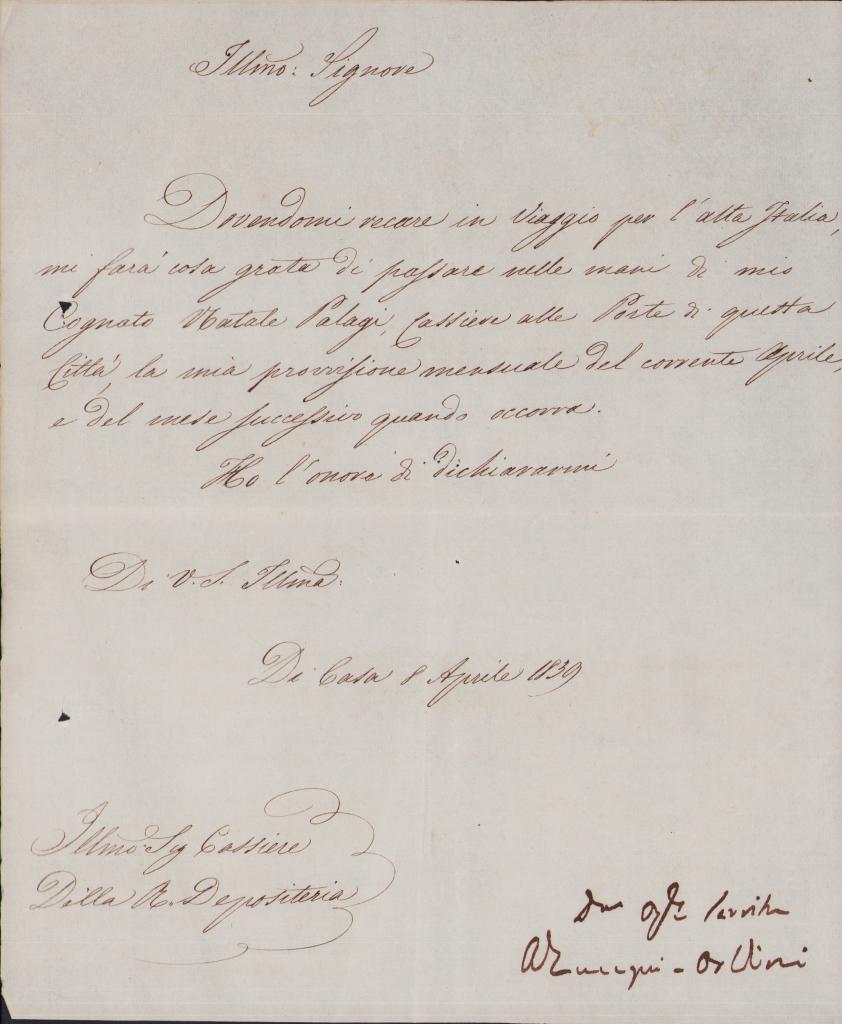 Illmo: Signore
Dovendomi recare in Viaggio per l'alta Italia,
mi farà cosa grata di passare nelle mani di mio
Cognato Natale Palagi, Cassiere alle Porte di questa
Città, la mia provvisione mensuale del corrente Aprile,
e del mese successivo quando occorra.
Ho l'onore di dichiararmi
Di V. S. Illma:
Di Casa 8 Aprile 1839
Illmo: Sig Cassiere
Della R. Depositeria
Orlini